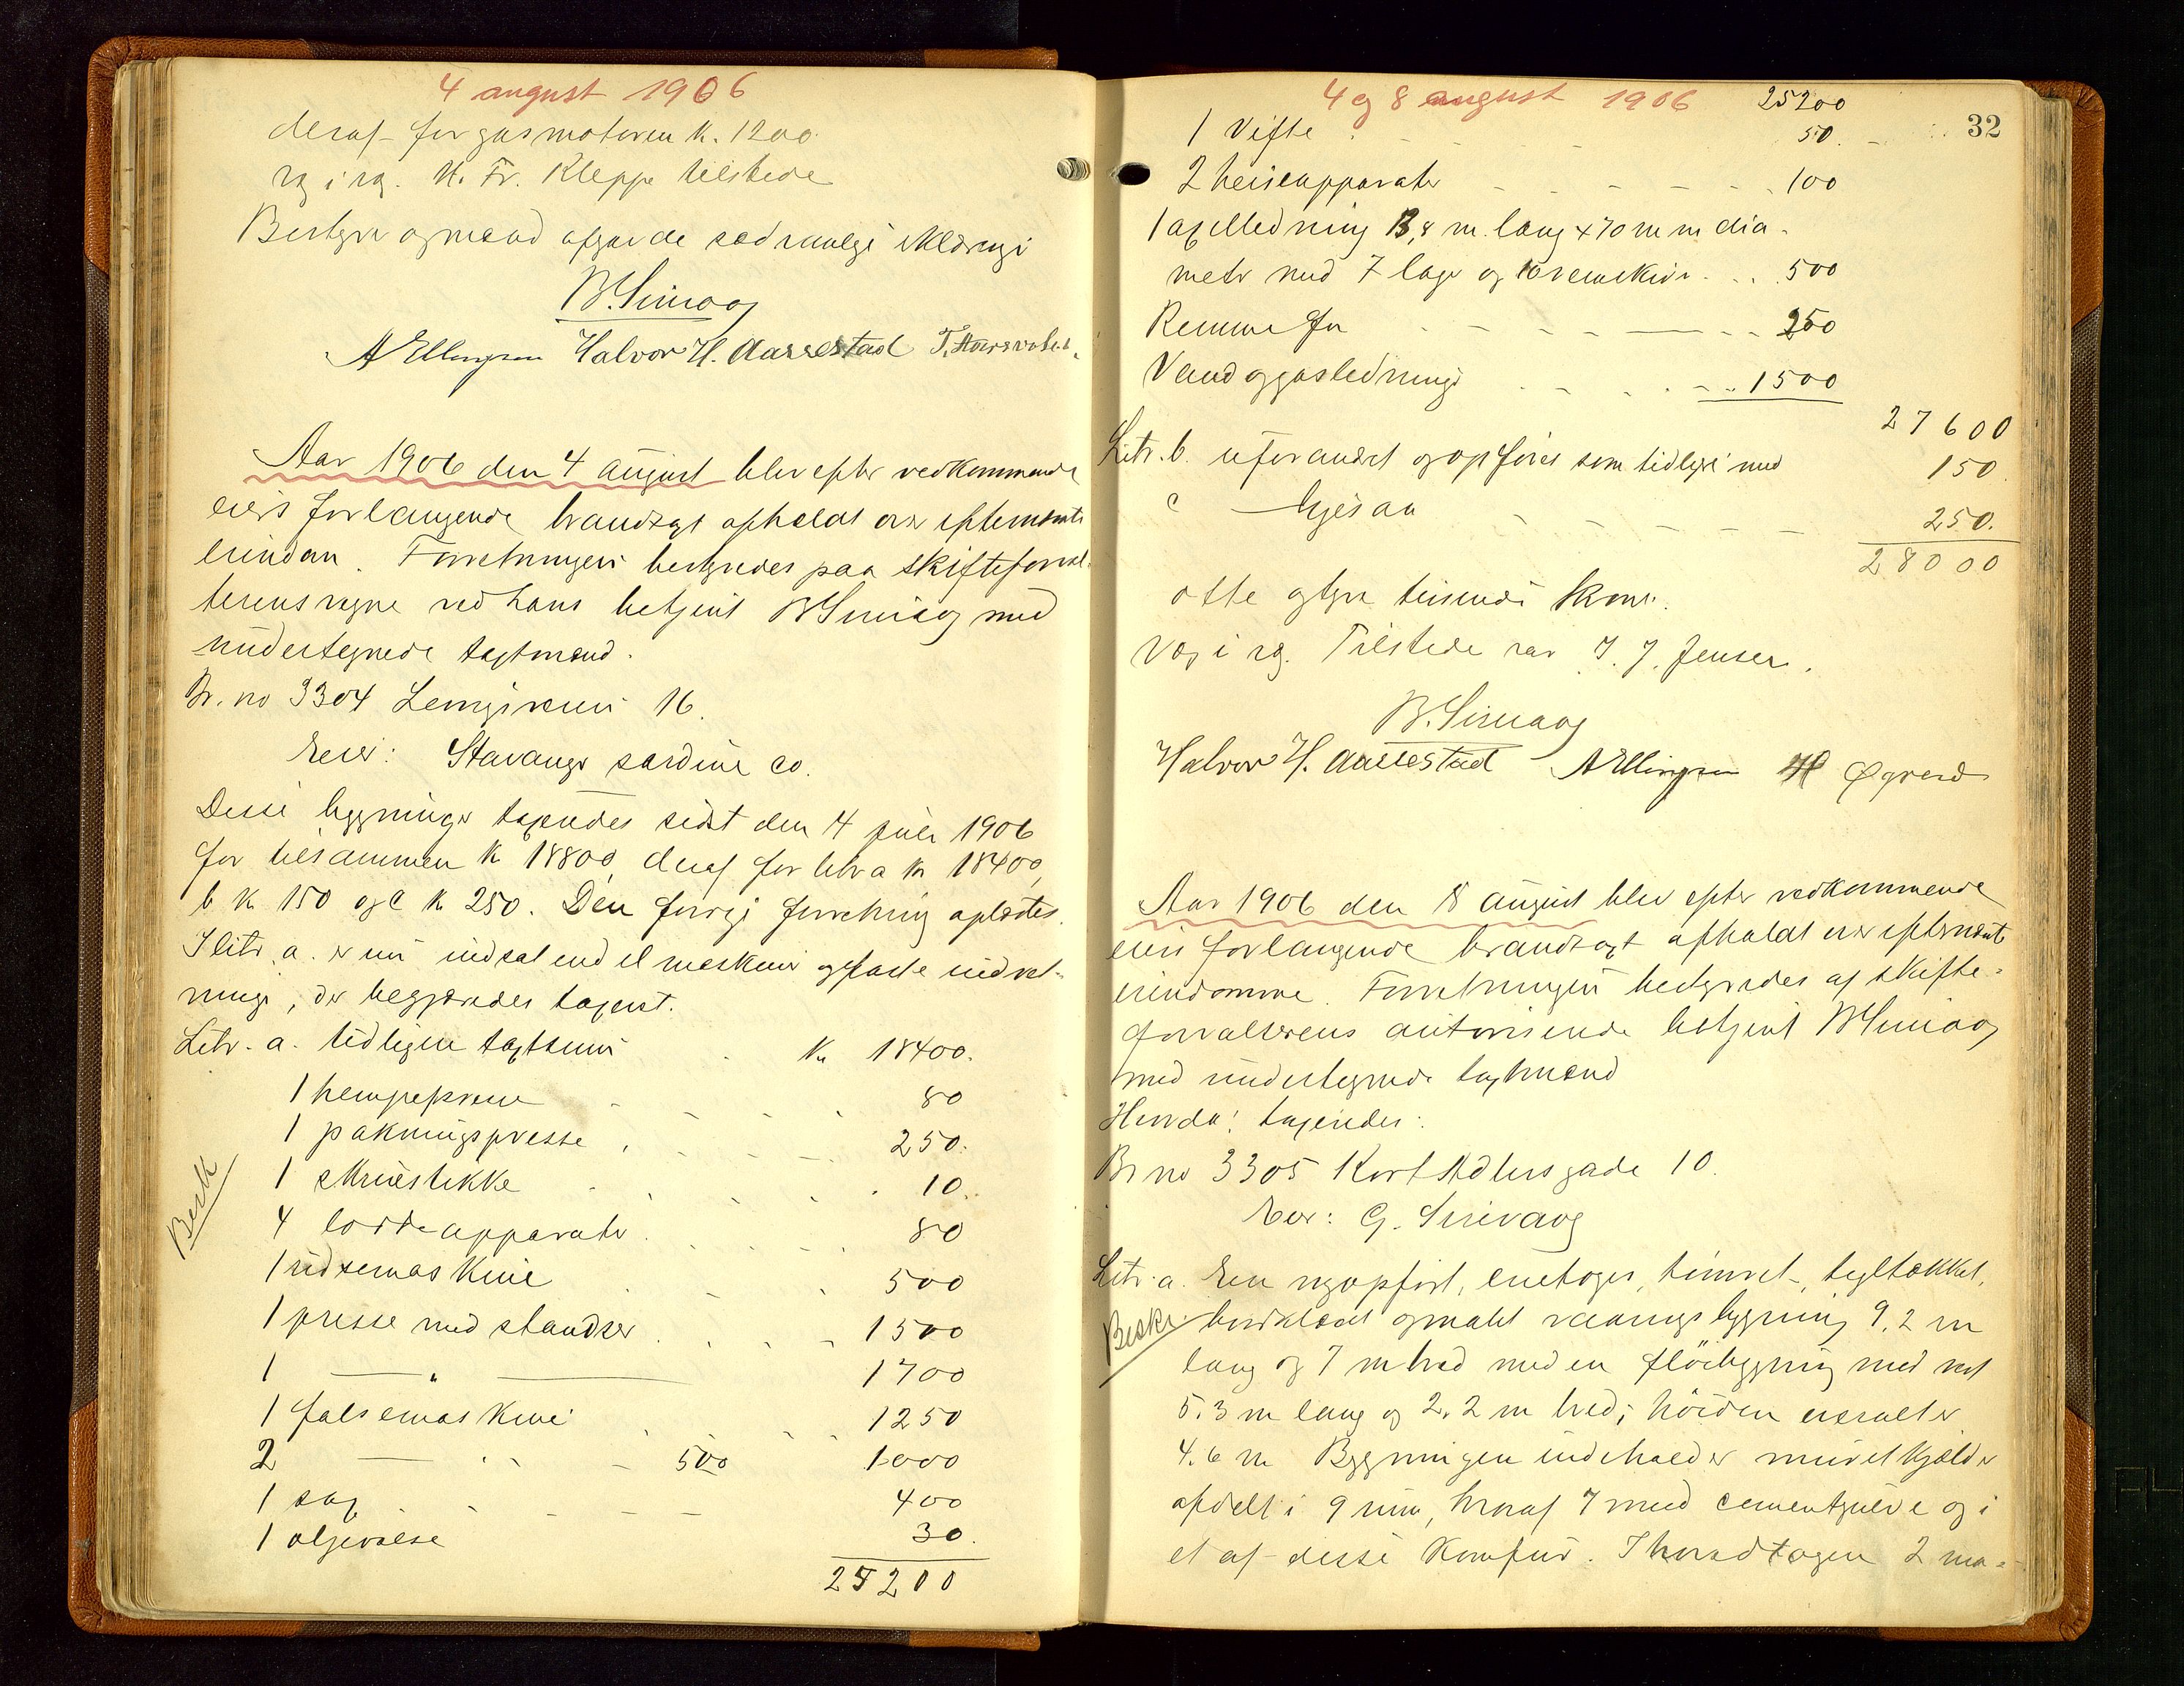 4 august 1906
deraf for gasmotoren k. 1200.
rg i rg. H. Fr. Kleppe tilstede
Bestyrer og mænd afgav de sædvanlige erklæringer
A Ellingsen Halvor H. Aarrestad
Aar 1906 den 4 august blev efter vedkommende
eiers forlangende brandtagst afholdt over efternævnte
eiendom. Forretningen bestyredes paa skifteforval-
terens vegne ved hans betjent med
undertegnede tagstmænd.
Br. no 3304 Lervigsveien 16.
Eier: Stavanger sardine co.
Disse bygninger taxeredes sidst den 4 juli 1906
for tilsammen k 18800, deraf for litr a k 18400,
b k 150 og c k 250. Den forrige forretning oplæstes.
I litr. a. er nu indsat en del maskiner og faste indret-
ninger, der begjæredes taxeret.
Litr. a. tidligere tagstsum . k 18400.
1 hempeprove 80
1 pakningspresse 250.
1 skruestikke 10.
4 loddeapparater 80
Besk
1 ridsemaskine 500
1 presse med standser 1500
1 — " — 1700
1 falsemaskine 1250
2 — " — 500 1000
1 sag 400
1 oljevalse 30.
25200
4 og 8 august 1906 25200
32
1 Vifte 50.
2 heiseapparater 100
1 axelledning 13,8 m. lang x 70 m m dia-
meter med 7 lager og 10 remskiver 500
Remme for 250
Vand og gasledninger 1500
27600
Litr. b. uforandret og opføres som tidligere med 150.
c — ligesaa 250.
28000
otte og tyve tusinde kroner.
Vog i rg. Tilstede var J. J. Jensen.
Halvor H. Aarrestad A Ellingsen Øgreid
Aar 1906 den 8 august blev efter vedkommende
eiers forlangende brandtagst afholdt over efternævnte
eiendomme. Forretningen bestyredes af skifte-
forvalterens autoriserede betjent
med undertegnede tagstmænd
Herved taxeredes:
Br no 3305 Kort Adlersgade 10.
Eier: G. Sirevaag
Litr. a. En nyopført, enetages, tømret-, tegltækket,
Beskr. bordklædt og malet vaaningsbygning 9,2 m
lang og 7 m bred med en fløibygning mod vest
5.3 m lang og 2,2 m bred; høiden overalt er
4.6 m Bygningen indeholder muret kjælder
afdelt i 9 rum, hvoraf 7 med cementgulve og i
et af disse komfur. I hovedetagen 2 ma-